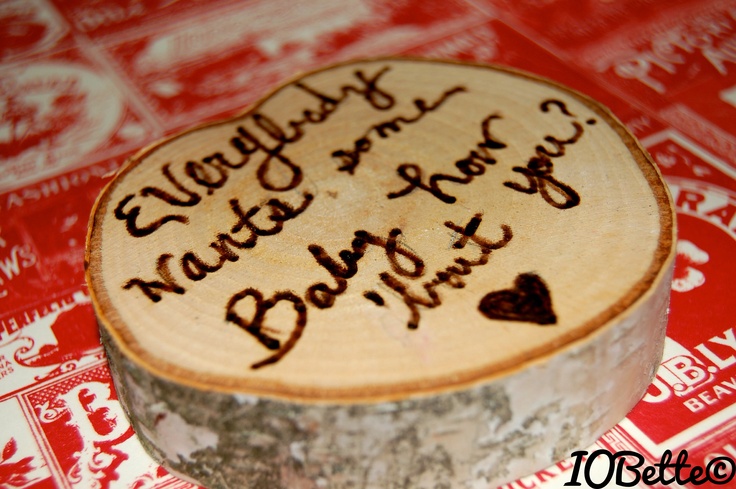 Everybody
Wants some
Baby how
'bout you?
IOBette©